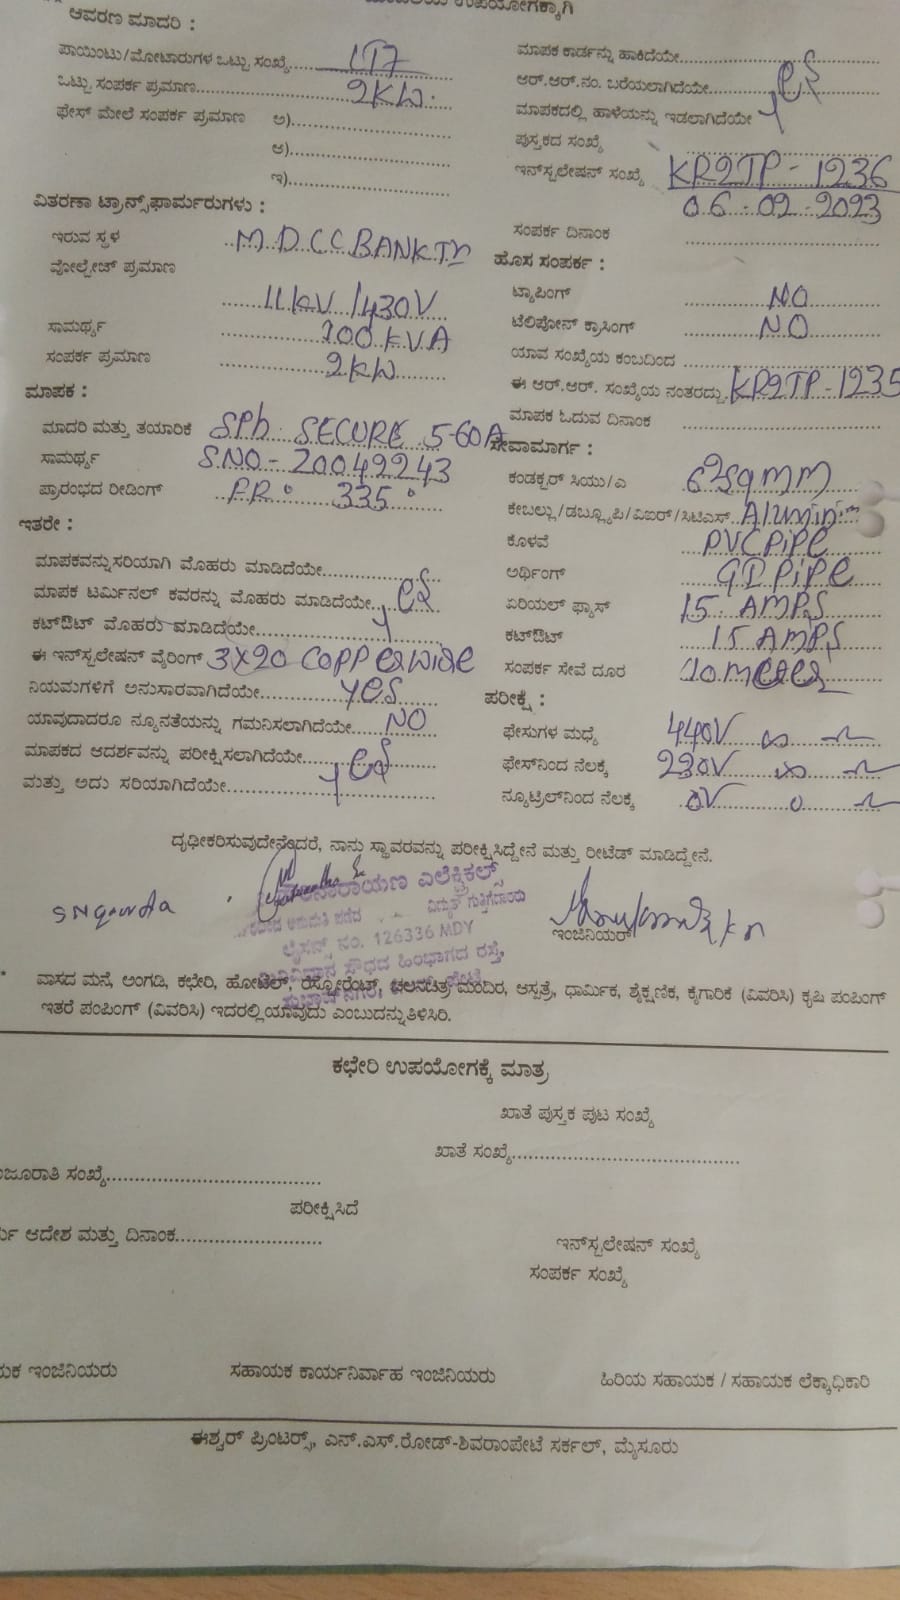 ಉಪಯೋಗಕ್ಕಾಗಿ
ಆವರಣ ಮಾದರಿ :
ಪಾಯಿಂಟು/ಮೋಟಾರುಗಳ ಒಟ್ಟು ಸಂಖ್ಯೆ
ಒಟ್ಟು ಸಂಪರ್ಕ ಪ್ರಮಾಣ 2KW
ಫೇಸ್ ಮೇಲೆ ಸಂಪರ್ಕ ಪ್ರಮಾಣ ಅ)
ಆ)
ಇ)
ವಿತರಣಾ ಟ್ರಾನ್ಸ್‌ಫಾರ್ಮರುಗಳು :
ಇರುವ ಸ್ಥಳ M.D.C.C.BANK
ವೋಲ್ಟೇಜ್ ಪ್ರಮಾಣ
11KV/430V
ಸಾಮರ್ಥ್ಯ 100KVA
ಸಂಪರ್ಕ ಪ್ರಮಾಣ 2KW
ಮಾಪಕ :
ಮಾದರಿ ಮತ್ತು ತಯಾರಿಕೆ SPh SECURE 5-60A
ಸಾಮರ್ಥ್ಯ S.NO-20049243
ಪ್ರಾರಂಭದ ರೀಡಿಂಗ್ 335
ಇತರೇ :
ಮಾಪಕವನ್ನು ಸರಿಯಾಗಿ ಮೊಹರು ಮಾಡಿದೆಯೇ
ಮಾಪಕ ಟರ್ಮಿನಲ್ ಕವರನ್ನು ಮೊಹರು ಮಾಡಿದೆಯೇ yes
ಕಟ್‌ಔಟ್ ಮೊಹರು ಮಾಡಿದೆಯೇ
ಈ ಇನ್‌ಸ್ಟಲೇಷನ್ ವೈರಿಂಗ್ 3X20 COPPER WIRE
ನಿಯಮಗಳಿಗೆ ಅನುಸಾರವಾಗಿದೆಯೇ yes
ಯಾವುದಾದರೂ ನ್ಯೂನತೆಯನ್ನು ಗಮನಿಸಲಾಗಿದೆಯೇ NO
ಮಾಪಕದ ಆದರ್ಶವನ್ನು ಪರೀಕ್ಷಿಸಲಾಗಿದೆಯೇ yes
ಮತ್ತು ಅದು ಸರಿಯಾಗಿದೆಯೇ
ಮಾಪಕ ಕಾರ್ಡನ್ನು ಹಾಕಿದೆಯೇ
ಆರ್.ಆರ್.ನಂ. ಬರೆಯಲಾಗಿದೆಯೇ yes
ಮಾಪಕದಲ್ಲಿ ಹಾಳೆಯನ್ನು ಇಡಲಾಗಿದೆಯೇ
ಪುಸ್ತಕದ ಸಂಖ್ಯೆ
ಇನ್‌ಸ್ಟಲೇಷನ್ ಸಂಖ್ಯೆ KR2TP-1236
06-02-2023
ಸಂಪರ್ಕ ದಿನಾಂಕ
ಹೊಸ ಸಂಪರ್ಕ :
ಟ್ಯಾಪಿಂಗ್ NO
ಟೆಲಿಪೋನ್ ಕ್ರಾಸಿಂಗ್ NO
ಯಾವ ಸಂಖ್ಯೆಯ ಕಂಬದಿಂದ
ಈ ಆರ್.ಆರ್. ಸಂಖ್ಯೆಯ ನಂತರದ್ದು KR2TP-1235
ಮಾಪಕ ಓದುವ ದಿನಾಂಕ
ಸೇವಾಮಾರ್ಗ :
ಕಂಡಕ್ಟರ್ ಸಿಯು/ಎ sqmm
ಕೇಬಲ್ಲು/ಡಬ್ಲ್ಯೂಪಿ/ವಿಐರ್/ಸಿಟಿಎಸ್
ಕೊಳವೆ PVC PiPe
ಅರ್ಥಿಂಗ್ GI PiPe
ಏರಿಯಲ್ ಫ್ಯೂಸ್ 15 AMPS
ಕಟ್‌ಔಟ್ 15 AMPS
ಸಂಪರ್ಕ ಸೇವೆ ದೂರ 10 meter
ಪರೀಕ್ಷೆ :
ಫೇಸುಗಳ ಮಧ್ಯೆ 440V
ಫೇಸ್‌ನಿಂದ ನೆಲಕ್ಕೆ 230V
ನ್ಯೂಟ್ರಲ್‌ನಿಂದ ನೆಲಕ್ಕೆ 0V
ದೃಢೀಕರಿಸುವುದೇನೆಂದರೆ, ನಾನು ಸ್ಥಾವರವನ್ನು ಪರೀಕ್ಷಿಸಿದ್ದೇನೆ ಮತ್ತು ರೀಟೆಡ್ ಮಾಡಿದ್ದೇನೆ.
ನಾರಾಯಣ ಎಲೆಕ್ಟ್ರಿಕಲ್ಸ್
ವಿದ್ಯುತ್ ಗುತ್ತಿಗೆದಾರರು
ಲೈಸನ್ಸ್ ನಂ. 126336 MDY
ಸೌಧದ ಹಿಂಭಾಗದ ರಸ್ತೆ,
SN gowda
ಇಂಜಿನಿಯರ್
* ವಾಸದ ಮನೆ, ಅಂಗಡಿ, ಕಛೇರಿ, ಹೋಟೆಲ್, ರೆಸ್ಟೋರೆಂಟ್, ಚಲನಚಿತ್ರ ಮಂದಿರ, ಆಸ್ಪತ್ರೆ, ಧಾರ್ಮಿಕ, ಶೈಕ್ಷಣಿಕ, ಕೈಗಾರಿಕೆ (ವಿವರಿಸಿ) ಕೃಷಿ ಪಂಪಿಂಗ್
ಇತರೆ ಪಂಪಿಂಗ್ (ವಿವರಿಸಿ) ಇದರಲ್ಲಿ ಯಾವುದು ಎಂಬುದನ್ನು ತಿಳಿಸಿರಿ.
ಕಛೇರಿ ಉಪಯೋಗಕ್ಕೆ ಮಾತ್ರ
ಖಾತೆ ಪುಸ್ತಕ ಪುಟ ಸಂಖ್ಯೆ
ಖಾತೆ ಸಂಖ್ಯೆ
ಜೂರಾತಿ ಸಂಖ್ಯೆ
ಪರೀಕ್ಷಿಸಿದೆ
ಆದೇಶ ಮತ್ತು ದಿನಾಂಕ
ಇನ್‌ಸ್ಟಲೇಷನ್ ಸಂಖ್ಯೆ
ಸಂಪರ್ಕ ಸಂಖ್ಯೆ
ಯಕ ಇಂಜಿನಿಯರು ಸಹಾಯಕ ಕಾರ್ಯನಿರ್ವಾಹ ಇಂಜಿನಿಯರು ಹಿರಿಯ ಸಹಾಯಕ / ಸಹಾಯಕ ಲೆಕ್ಕಾಧಿಕಾರಿ
ಈಶ್ವರ್ ಪ್ರಿಂಟರ್ಸ್, ಎನ್.ಎಸ್.ರೋಡ್-ಶಿವರಾಂಪೇಟೆ ಸರ್ಕಲ್, ಮೈಸೂರು